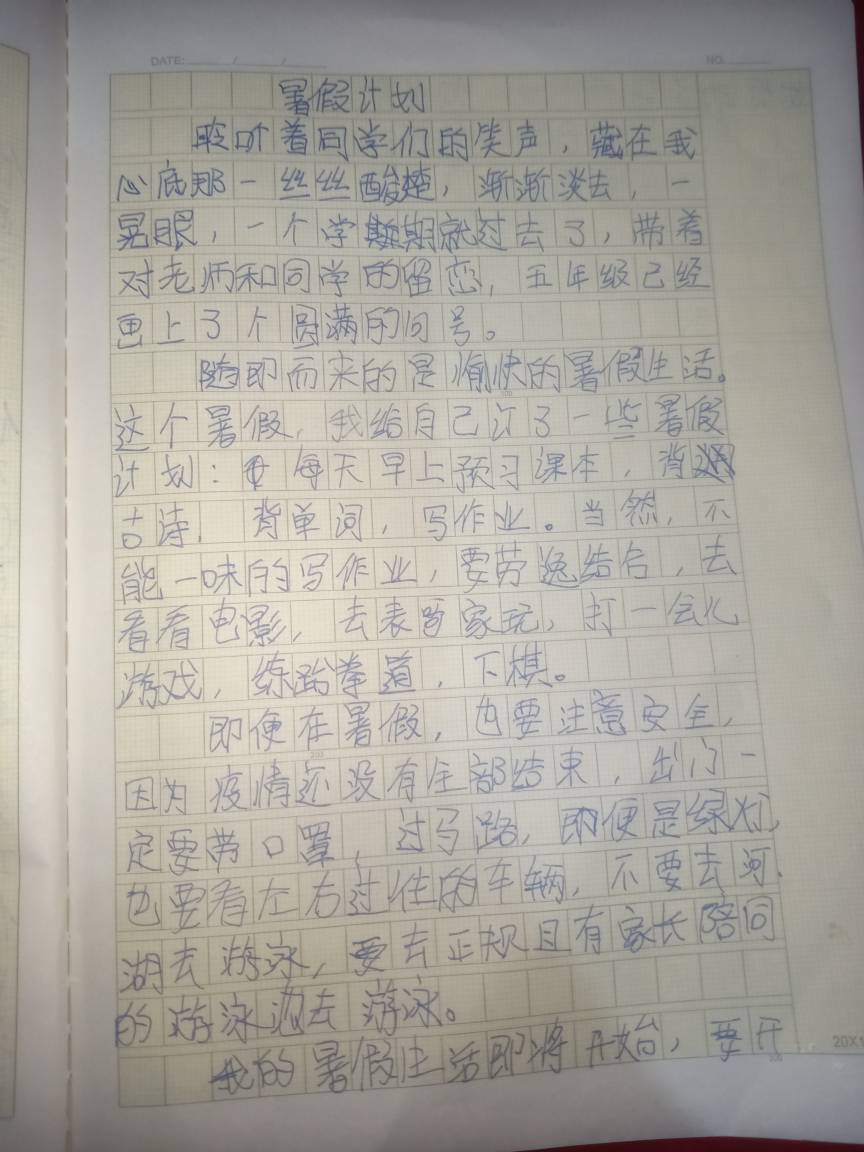 DATE: / /
NO.
暑假计划
聆听着同学们的笑声，藏在我
心底那一丝丝酸楚，渐渐淡去，一
晃眼，一个学期就过去了，带着
对老师和同学的留恋，五年级已经
画上了个圆满的问号。
随即而来的是愉快的暑假生活。
这个暑假，我给自己订了一些暑假
计划：每天早上预习课本，背
古诗，背单词，写作业。当然，不
能一味的写作业，要劳逸结合，去
看看电影，去表哥家玩，打一会儿
游戏，练跆拳道，下棋。
即便在暑假，也要注意安全，
因为疫情还没有全部结束，出门一
定要带口罩，过马路，即便是绿灯，
也要看左右过往的车辆，不要去河、
湖去游泳，要去正规且有家长陪同
的游泳池去游泳。
我的暑假生活即将开始，要开
20X1